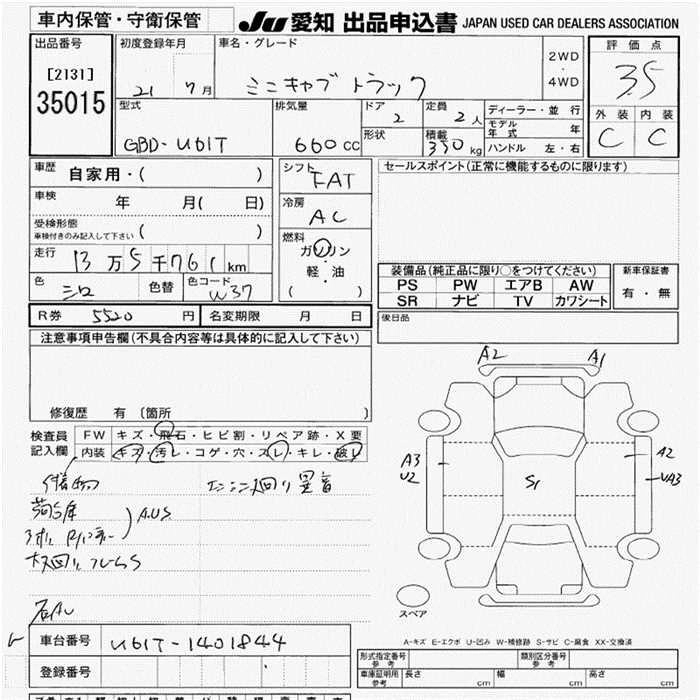 車内保管・守衛保管
JU 愛知 出品申込書 JAPAN USED CAR DEALERS ASSOCIATION
出品番号 初度登録年月 車名・グレード 2WD・4WD 評価点
[2131] 21 7月 ミニキャブ トラック 3.5
35015
型式 排気量 ドア 定員 ディーラー・並行 外装 内装
GBD-U61T 660cc 2 2人 モデル年式 年 C C
形状 積載 350kg ハンドル 左・右
車歴 自家用・( ) シフト FAT セールスポイント(正常に機能するものに限ります)
車検 年 月( 日) 冷房 AC
受検形態 車検付きのみ記入して下さい ( ) 燃料 ガソリン・軽・油 ( )
走行 13万5千761km
色 シロ 色替 色コード W37
装備品(純正品に限り○をつけてください) 新車保証書
PS PW エアB AW 有・無
SR ナビ TV カワシート
R券 5520円 名変期限 月 日 後日品
注意事項申告欄(不具合内容等は具体的に記入して下さい)
修復歴 有 [箇所 ]
検査員記入欄 FW キズ・飛石・ヒビ割・リペア跡・X要
内装 キズ・汚レ・コゲ・穴・スレ・キレ・破レ
エンジン廻り異音
A.U.S
A2 A1
A3 U2 S1 A2 UA3
スペア
A-キズ E-エクボ U-凹み W-補修跡 S-サビ C-腐食 XX-交換済
車台番号 U61T-1401844
登録番号
形式指定番号 参考 類別区分番号 参考
車庫証明用 参考 長さ cm 幅 cm 高さ cm